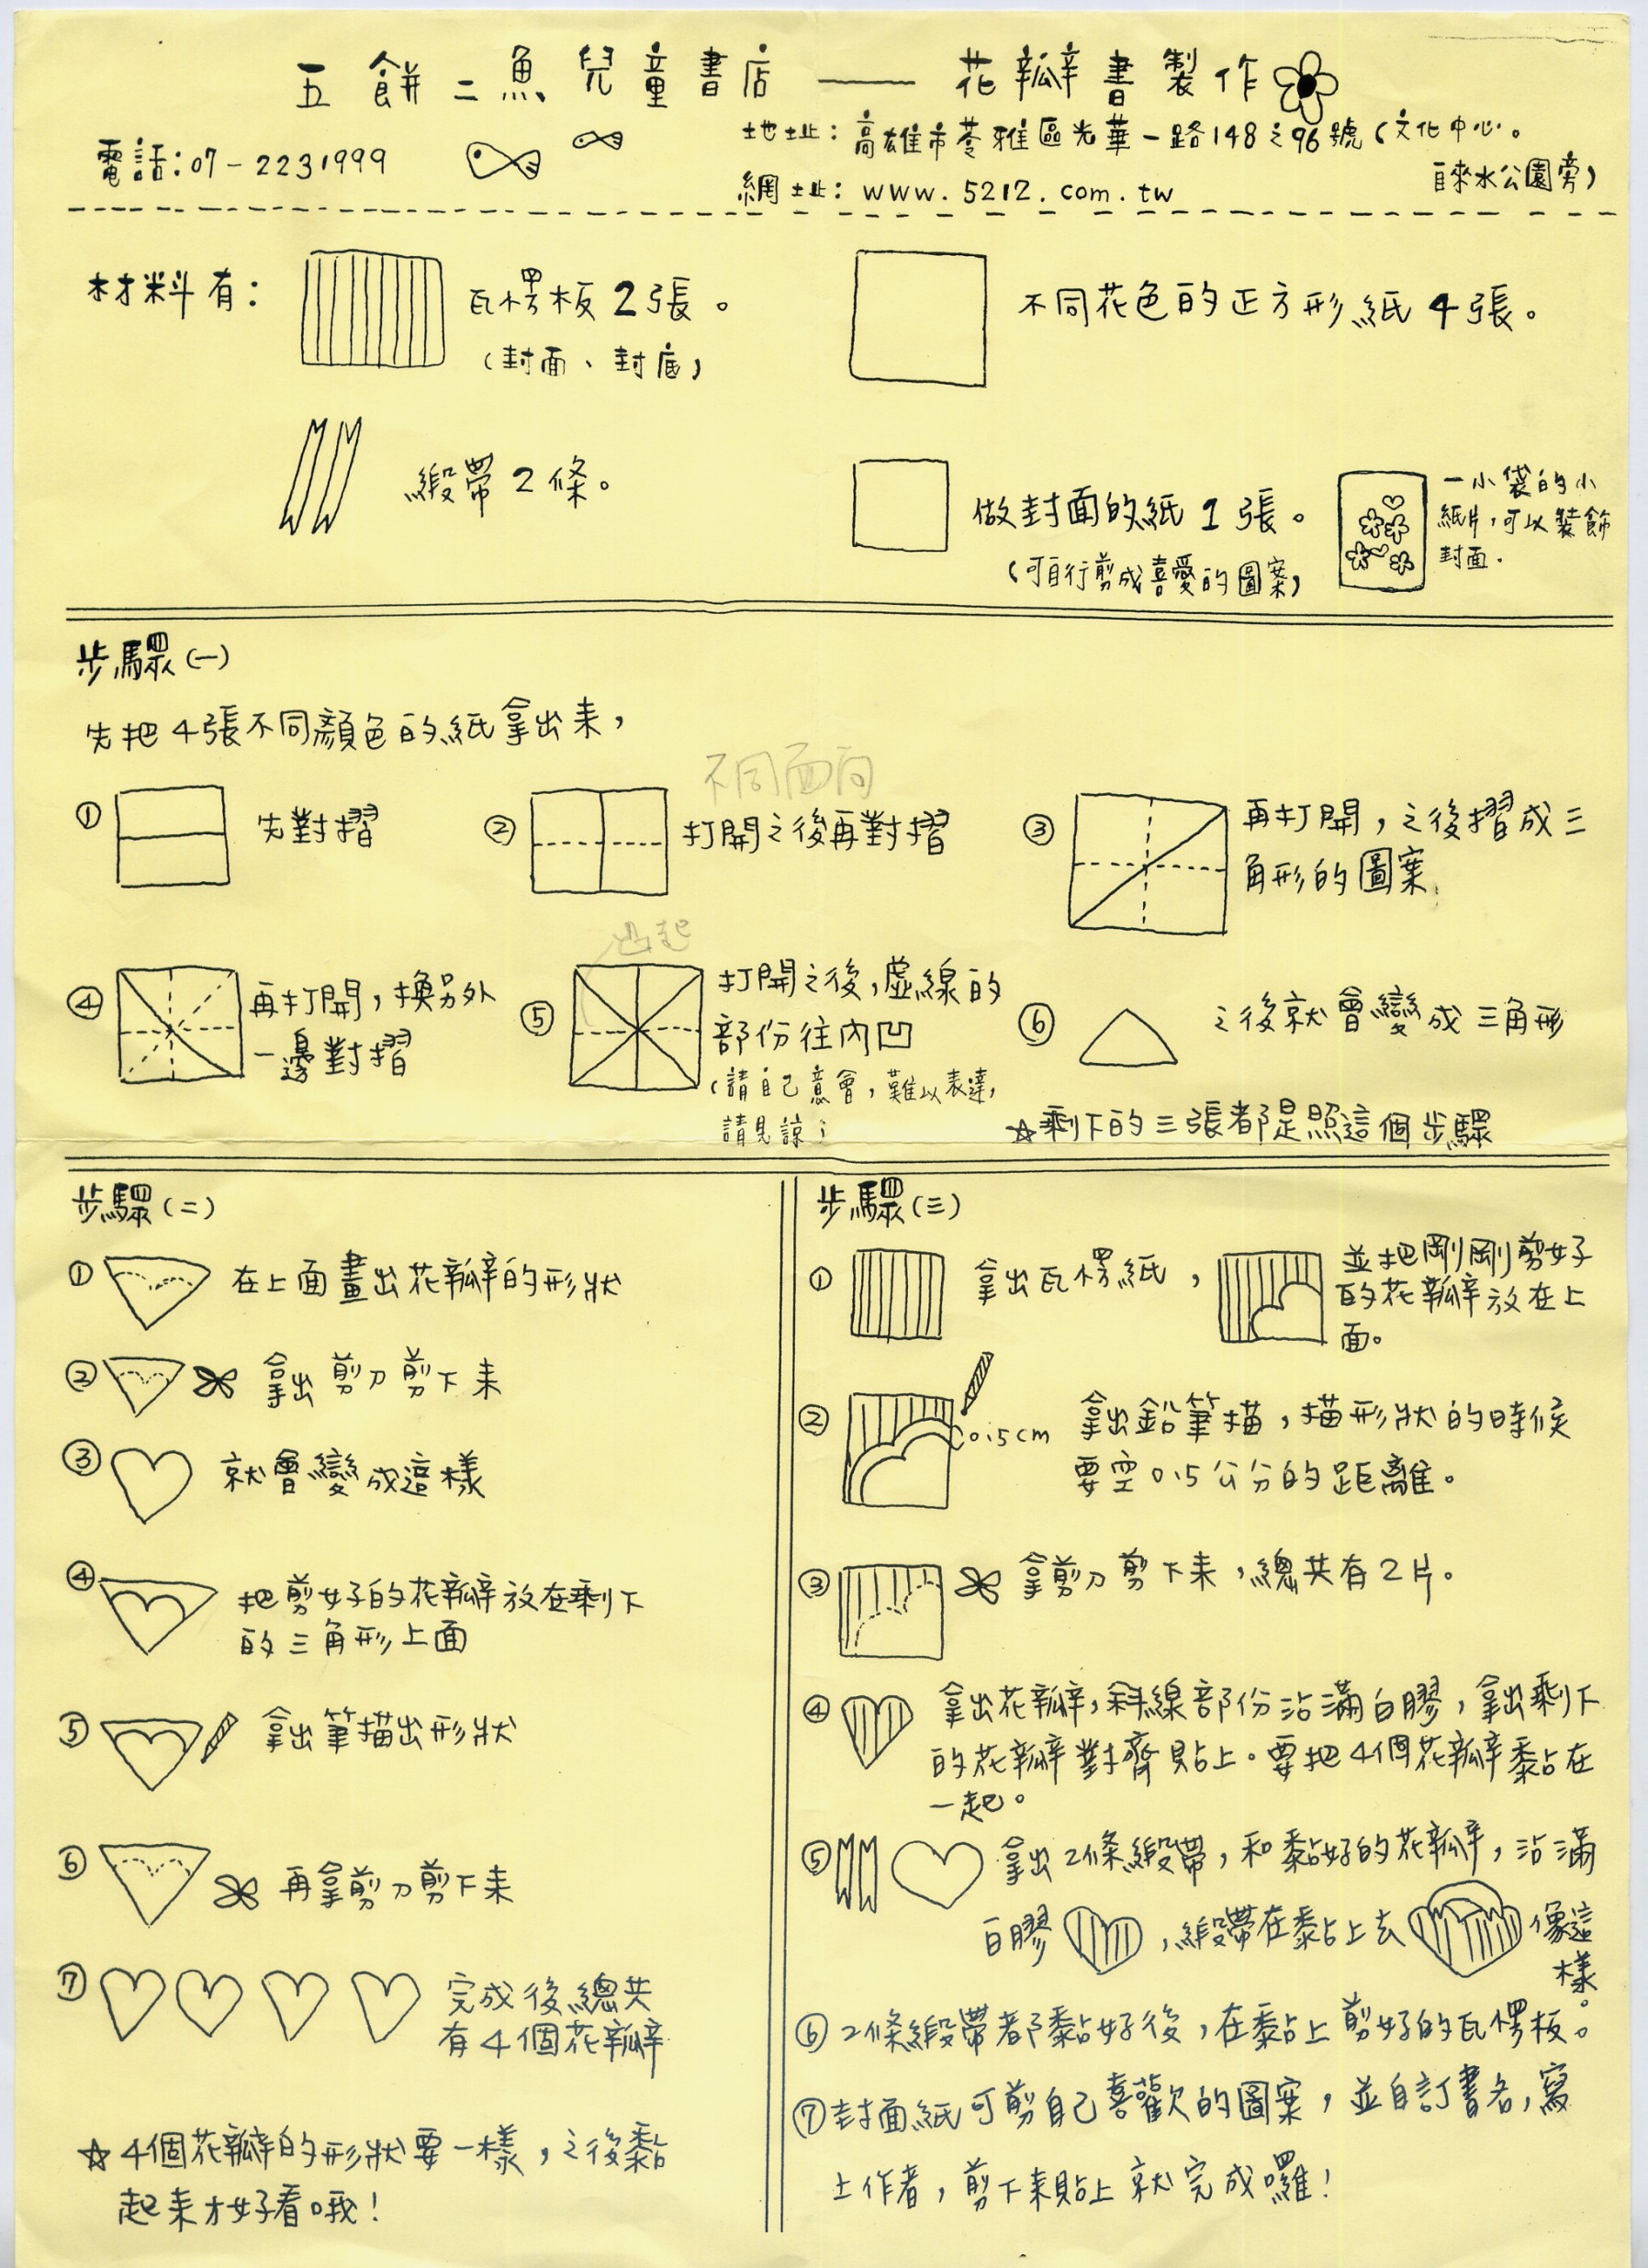 五餅二魚兒童書店——花瓣書製作
電話:07-2231999
地址:高雄市苓雅區光華一路148之96號(文化中心。
自來水公園旁)
網址: www.5212.com.tw
材料有:
瓦楞板2張。
(封面、封底)
不同花色的正方形紙4張。
緞帶2條。
做封面的紙1張。
(可自行剪成喜愛的圖案)
一小袋的小
紙片,可以裝飾
封面.
步驟(一)
先把4張不同顏色的紙拿出來,
① 先對摺
不同面向
② 打開之後再對摺
③ 再打開,之後摺成三
角形的圖案.
④ 再打開,換另外
一邊對摺
凸起
⑤ 打開之後,虛線的
部份往內凹
(請自己意會,難以表達,
請見諒)
⑥ 之後就會變成三角形
☆剩下的三張都是照這個步驟
步驟(二)
① 在上面畫出花瓣的形狀
② 拿出剪刀剪下來
③ 就會變成這樣
④ 把剪好的花瓣放在剩下
的三角形上面
⑤ 拿出筆描出形狀
⑥ 再拿剪刀剪下來
⑦ 完成後總共
有4個花瓣
☆4個花瓣的形狀要一樣,之後黏
起來才好看哦!
步驟(三)
① 拿出瓦楞紙,
並把剛剛剪好
的花瓣放在上
面。
② 0.5cm 拿出鉛筆描,描形狀的時候
要空0.5公分的距離。
③ 拿剪刀剪下來,總共有2片。
④ 拿出花瓣,斜線部份沾滿白膠,拿出剩下
的花瓣對齊貼上。要把4個花瓣黏在
一起。
⑤ 拿出2條緞帶,和黏好的花瓣,沾滿
白膠 ,緞帶在黏上去 像這
樣。
⑥2條緞帶都黏好後,在黏上剪好的瓦楞板。
⑦封面紙可剪自己喜歡的圖案,並自訂書名,寫
上作者,剪下來貼上就完成囉!